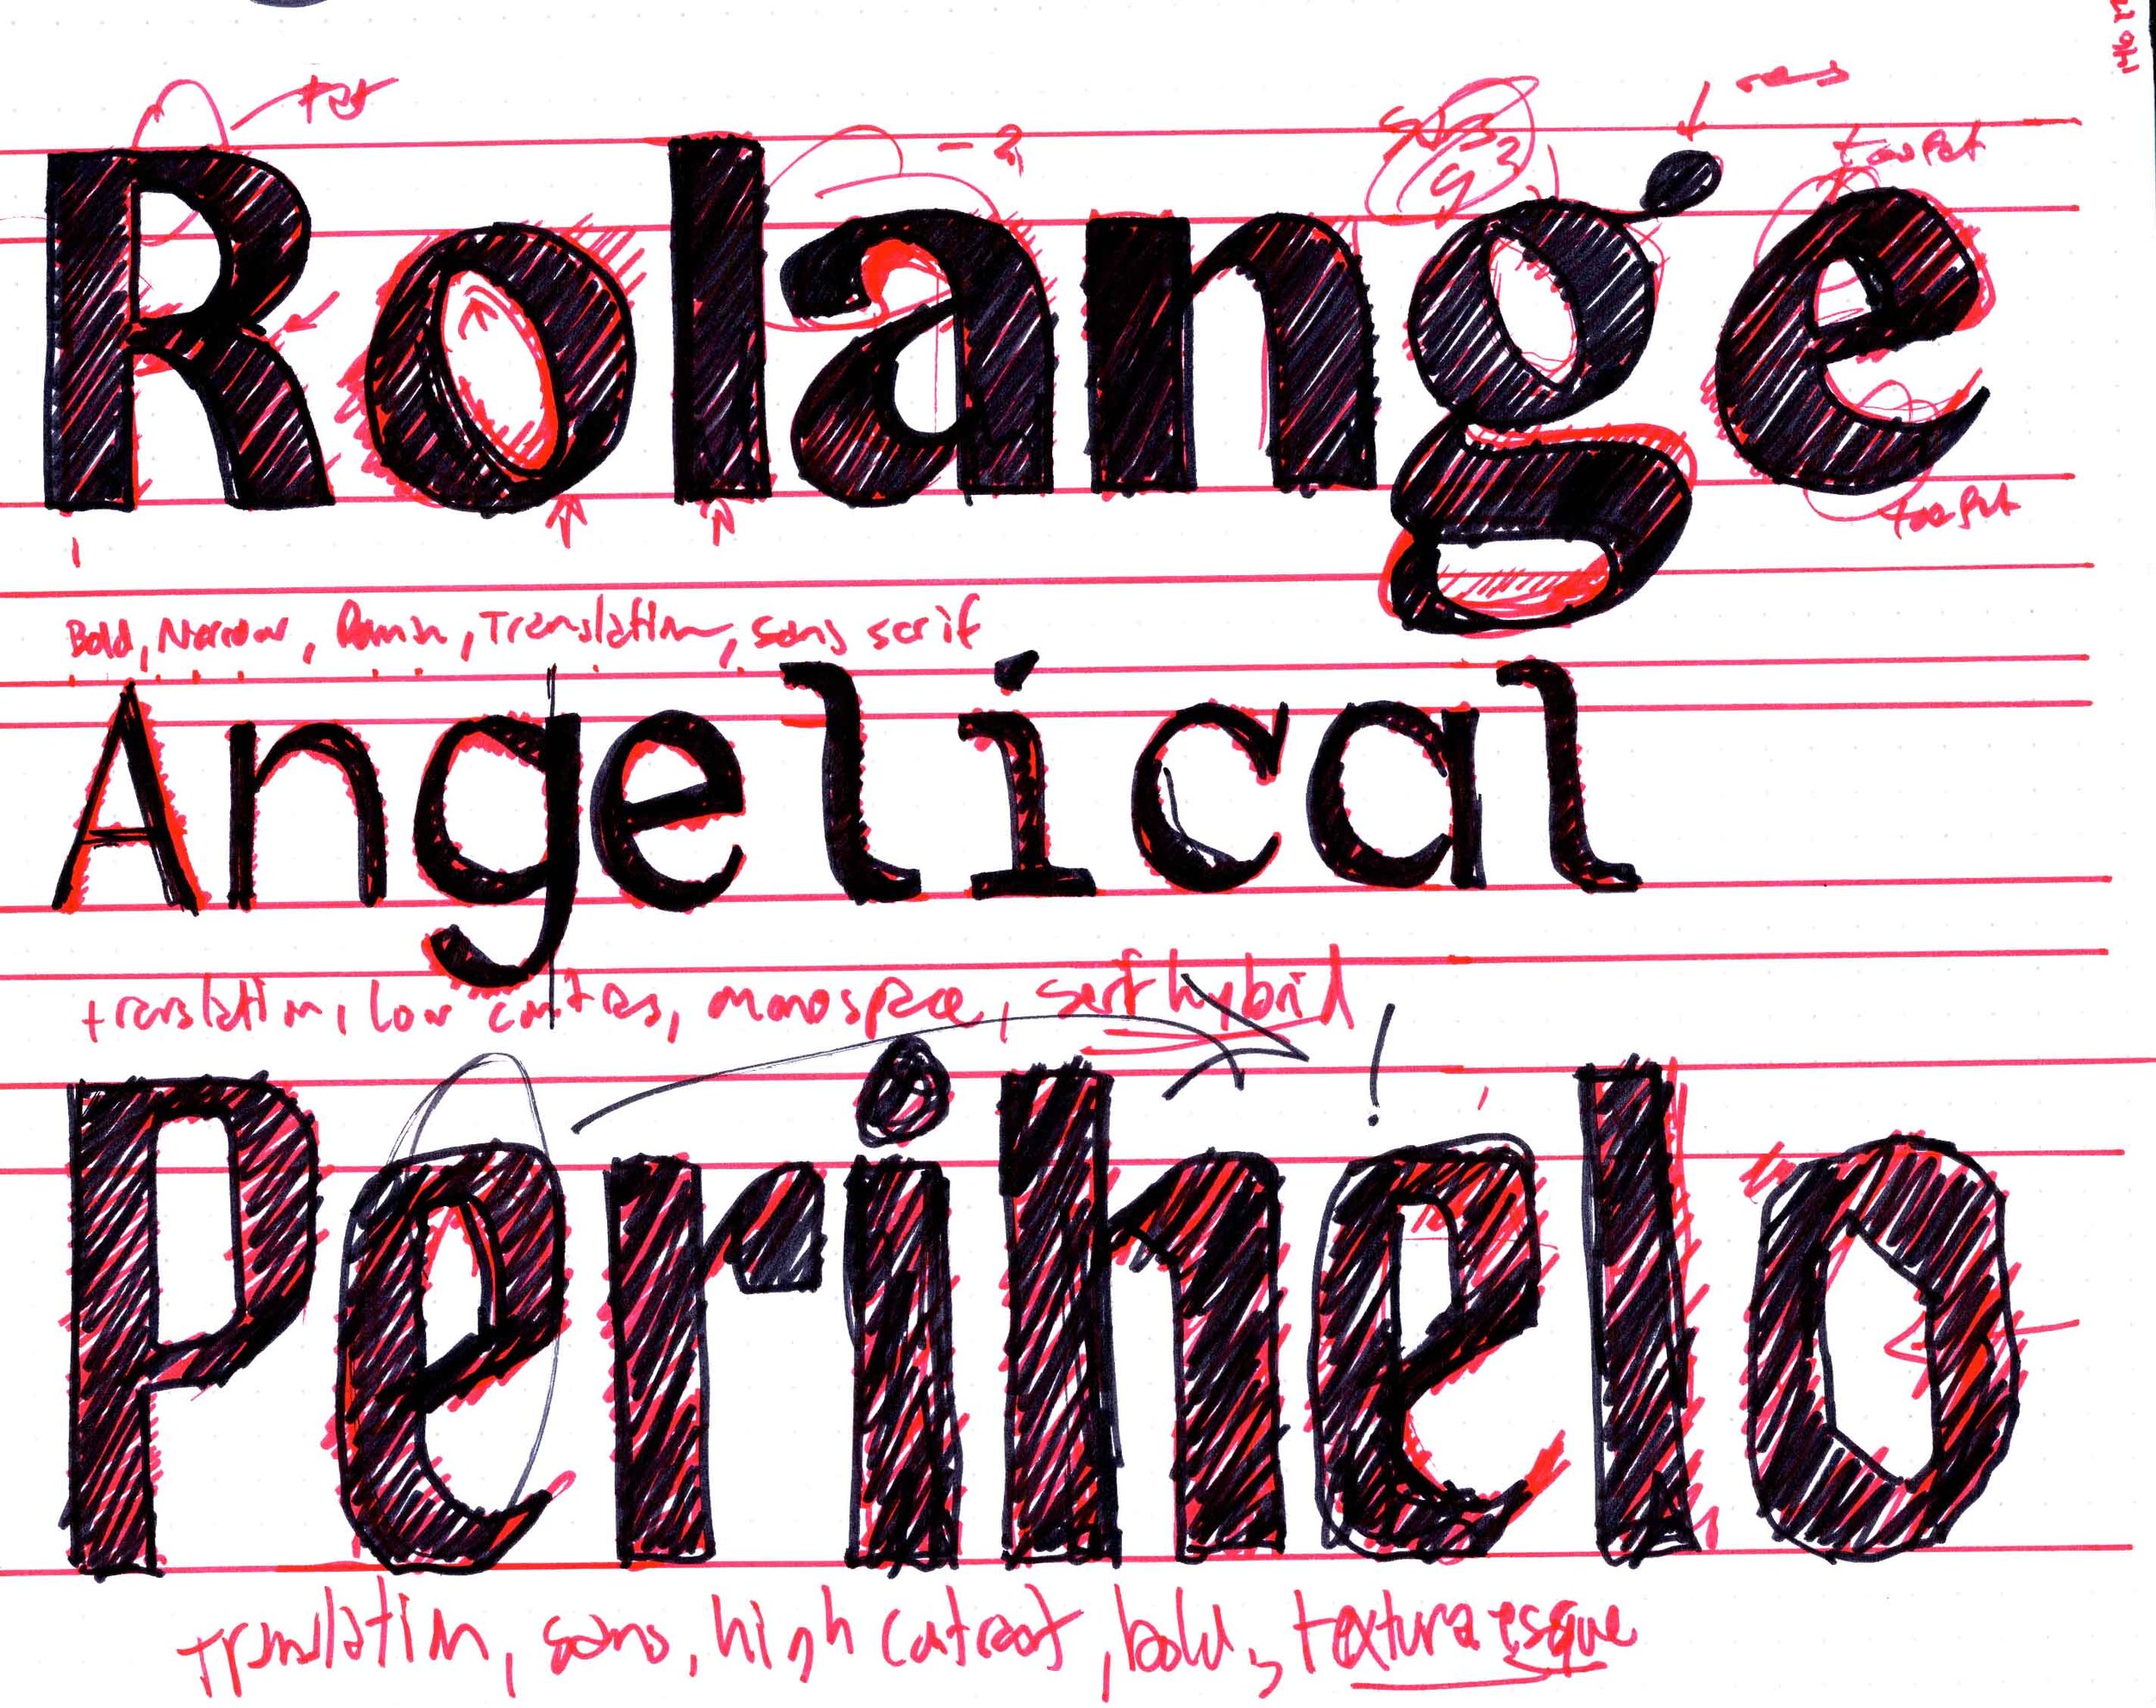 Rolange
too fat
too fat
Bold, Narrow, Roman, Translation, sans serif
Angelical
translation, low contras, monospace, serf hybrid
!
Perihelo
Translation, sans, high contrast, bold, textura esque